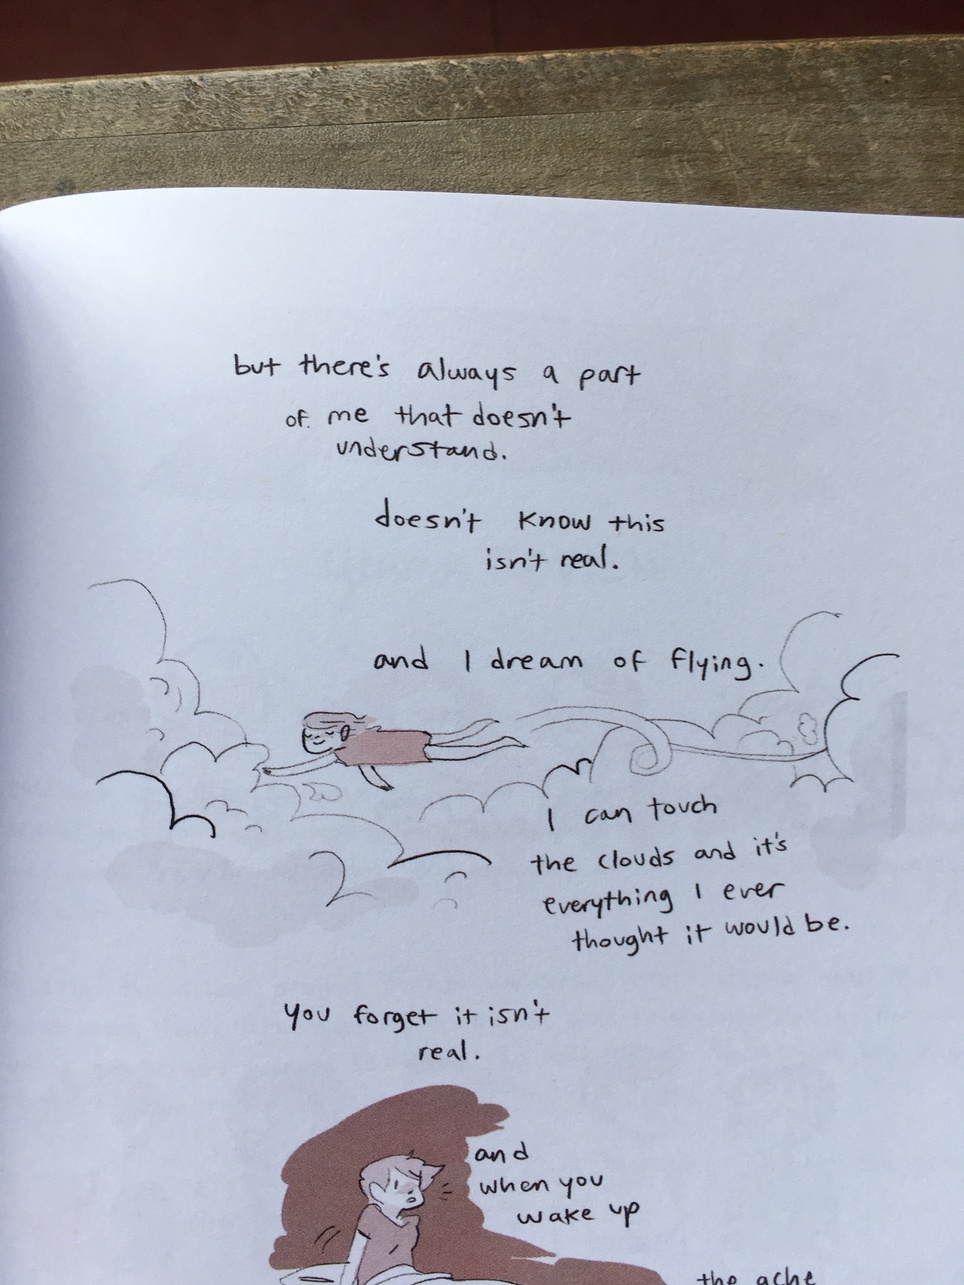 but there's always a part
of me that doesn't
understand.
doesn't know this
isn't real.
and I dream of flying.
I can touch
the clouds and it's
everything I ever
thought it would be.
you forget it isn't
real.
and
when you
wake up
the ache